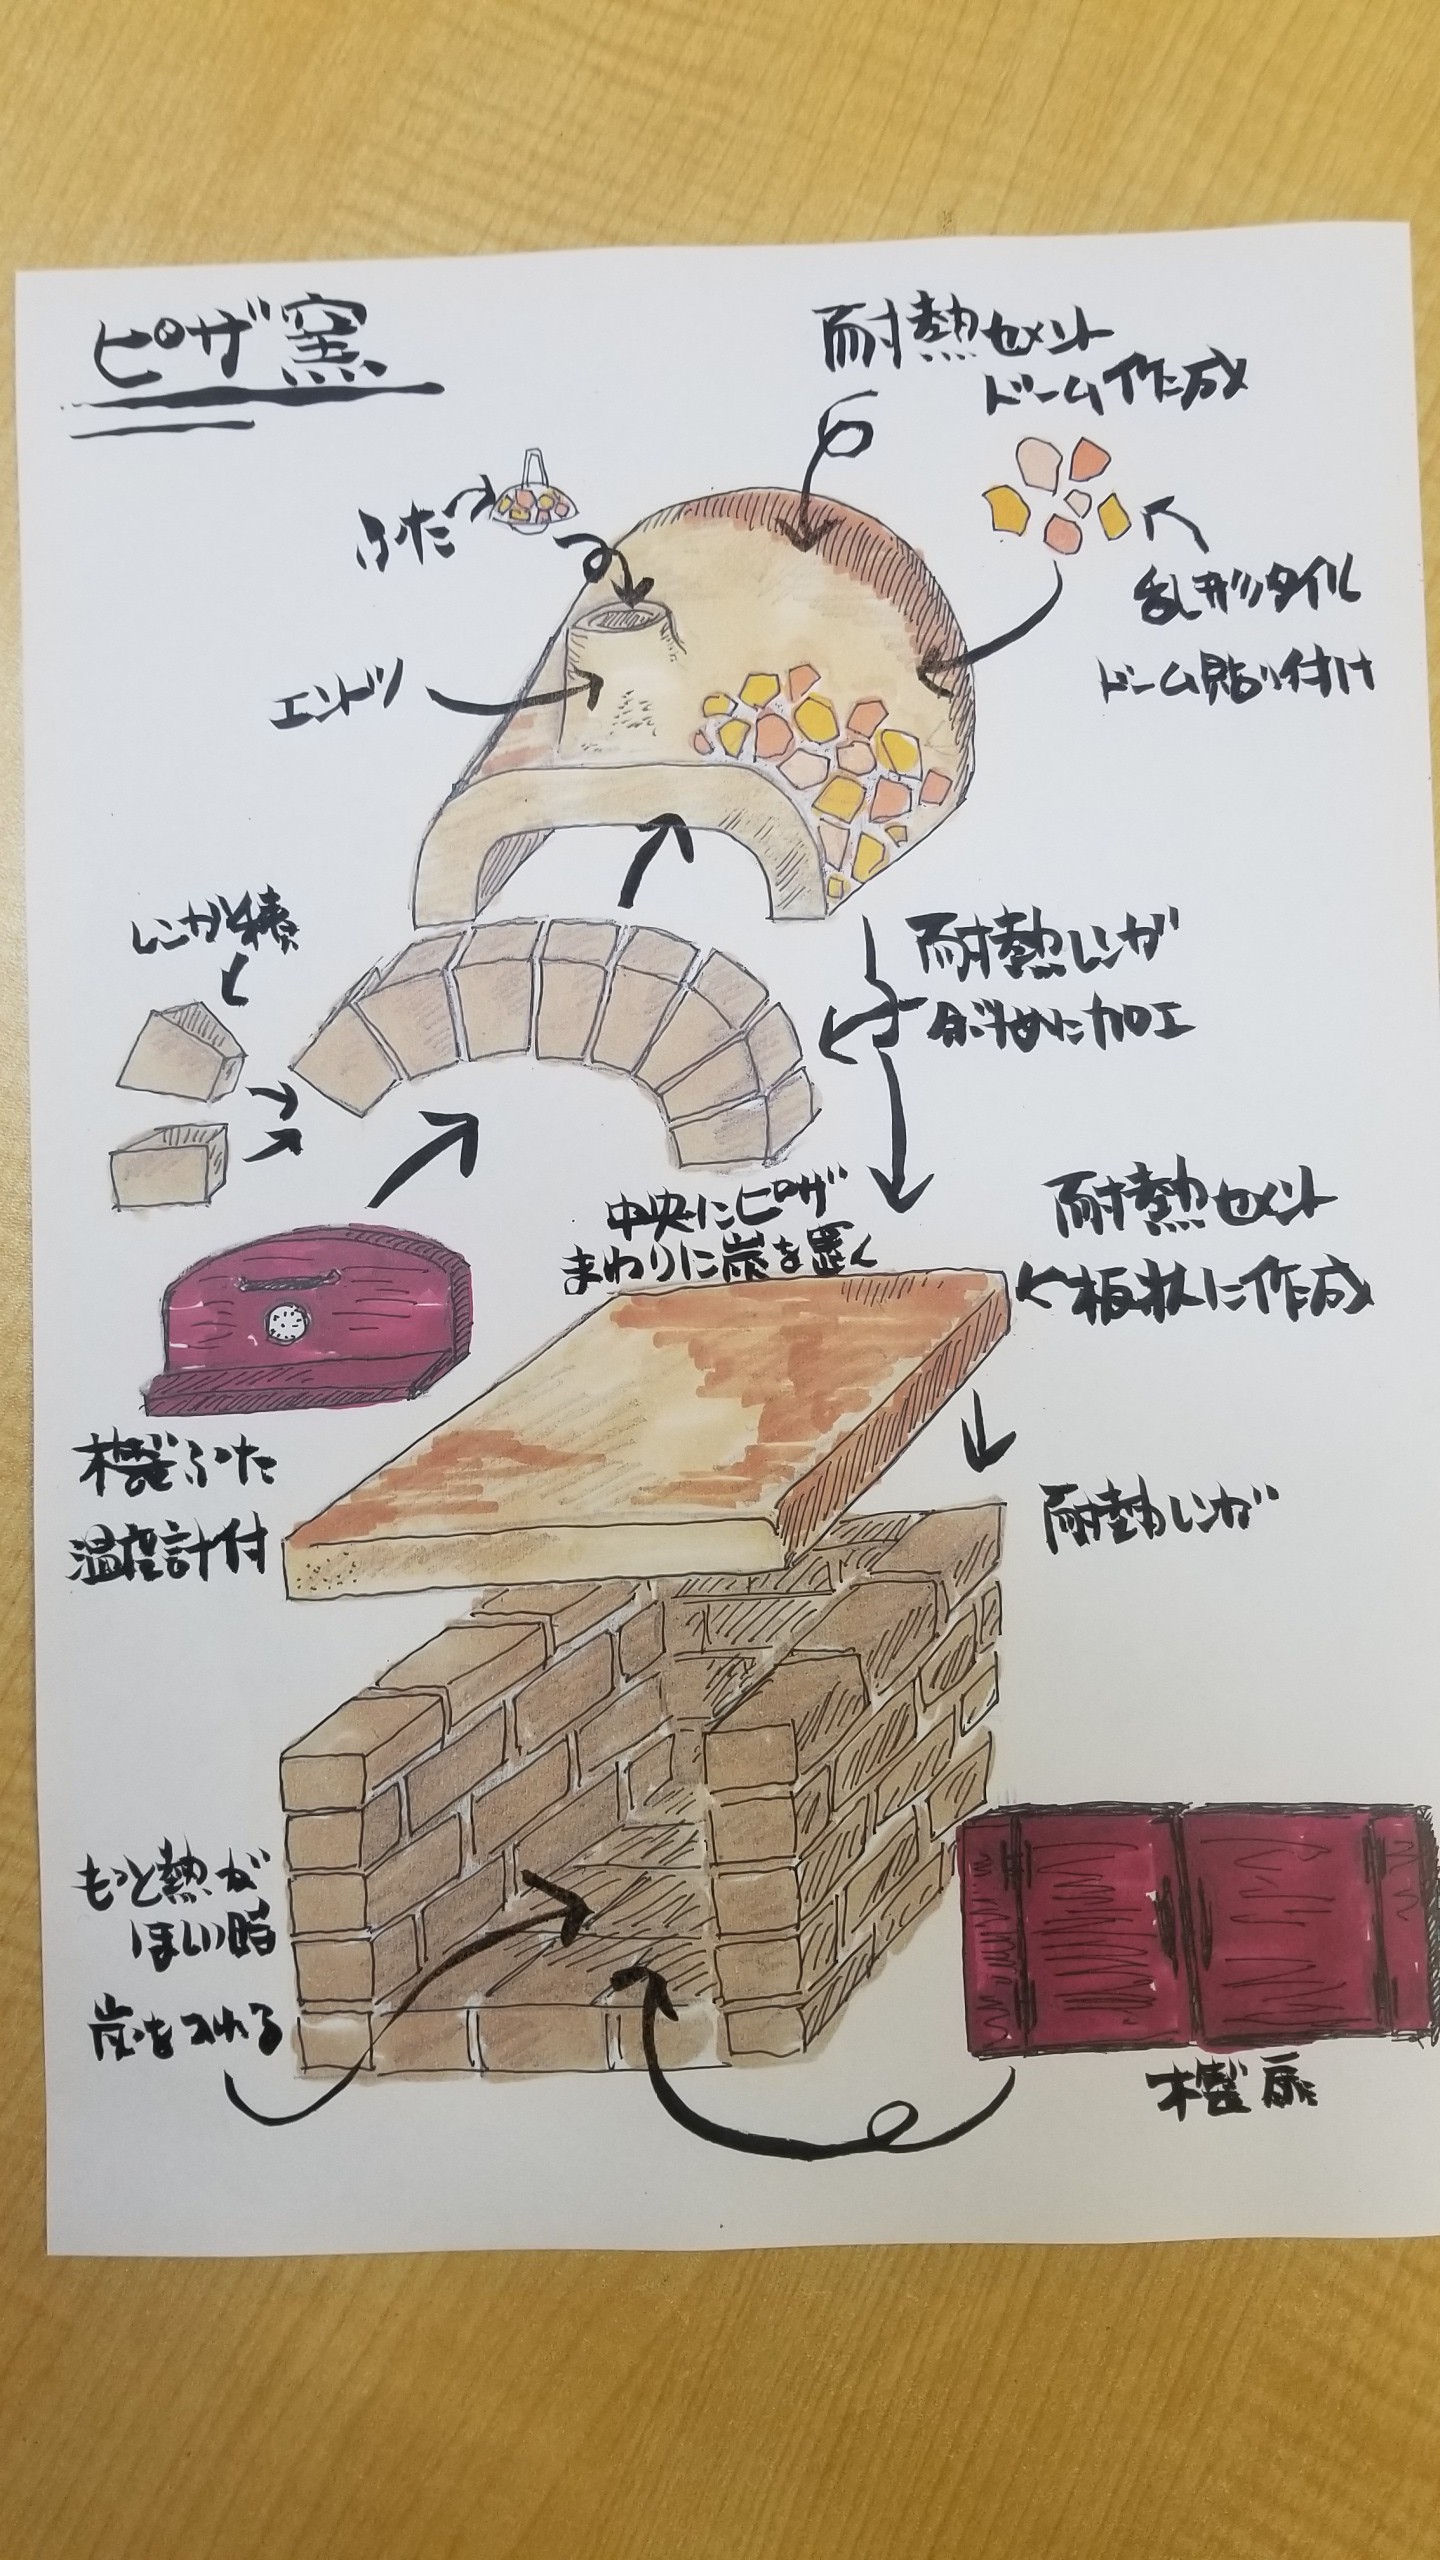 ピザ窯
耐熱セメント
ドーム作成
ふた
乱形タイル
ドーム貼り付け
エントツ
レンガ積
耐熱レンガ
斜めに加工
中央にピザ
まわりに炭を置く
耐熱セメント
板状に作成
木製ふた
温度計付
耐熱レンガ
もっと熱が
ほしい時
炭を入れる
木製扉